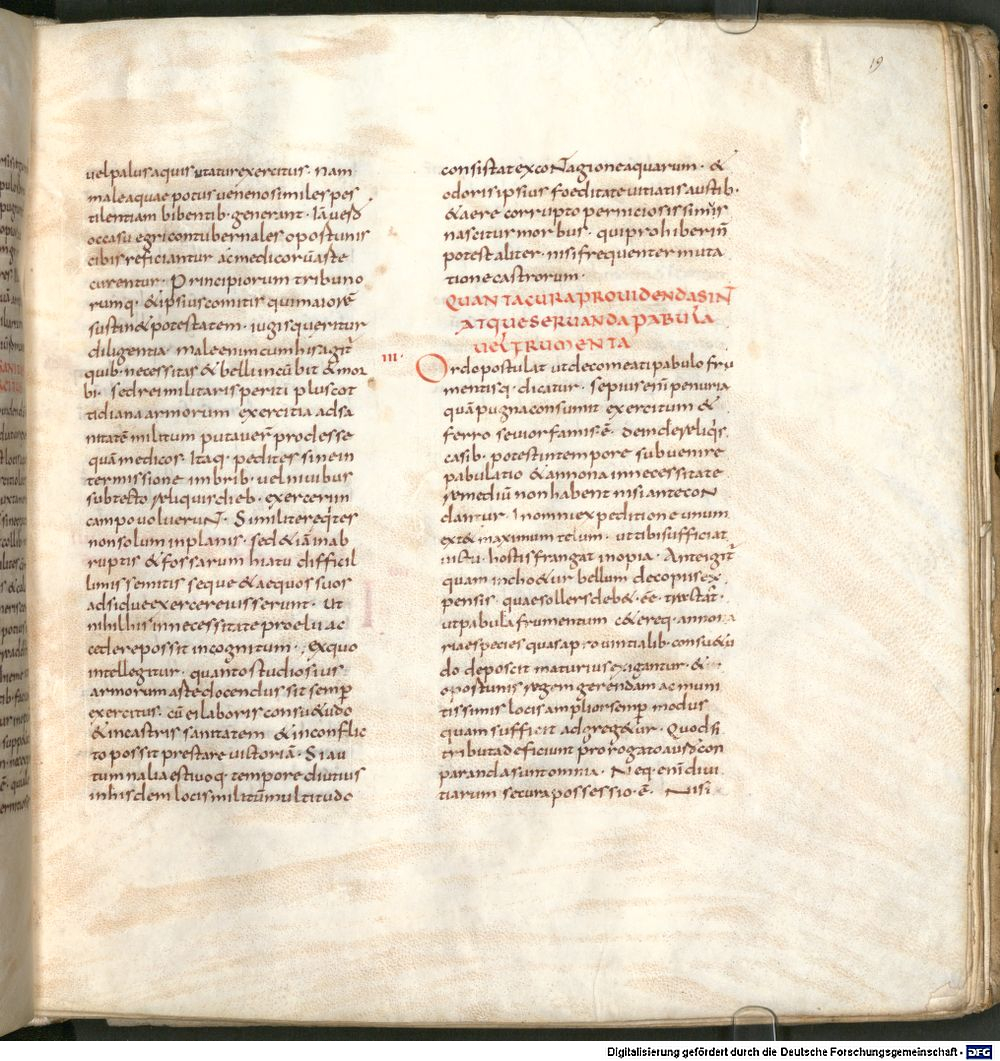 19
uel palus aquis utatur exercitus. nam
male aquae potus ueneno similes pes
tilentiam bibentib. generant. Iā uero
occasu egri contubernales oportunis
cibis reficiantur ac medicorū arte
curentur. Principiorum tribuno
rumq. & ipsius comitis qui maiorē
sustin& potestatem. iugis queritur
diligentia. male enim cum his agit̄
quib. necessitas & belli incūbit & mor
bi. sed rei militaris periti plus cot
tidiana armorum exercitia ad sa
nitatē militum putauer̄ prodesse
quā medicos. Itaq. pedites sine in
termissione imbrib. uel niuibus
sub tecto reliquis dieb. exerceri in
campo uoluerunt. Similiter eqites
non solum in planis. sed & iā in ab
ruptis & fossarum hiatu difficil
limis semitis seque & aequos suos
adsidue exercere iusserunt. ut
nihil his in necessitate proelii ac
cedere possit incognitum. Ex quo
intellegitur. quanto studiosius
armorum arte docendus sit semp̄
exercitus. cū ei laboris consu&udo
& in castris sanitatem & in conflic
to possit prestare uictoriā. Si au
tumnali aestiuoq. tempore diutius
in hisdem locis militū multitudo
consistat ex contagione aquarum. &
odoris ipsius foeditate uitiatis austib.
& aere corrupto perniciosissimus
nascitur morbus. qui prohiberi n̄
potest aliter. nisi frequenter muta
tione castrorum.
QUANTA CURA PROUIDENDA SINT
ATQUE SERUANDA PABULA
UEL FRUMENTA
III. Ordo postulat ut de comeati pabulo fru
mentisq. dicatur. sepius em̄ penuria
quā pugna consumit exercitum &
ferro seuior fames ē. deinde reliqis
casib. potest in tempore subuenire
pabulatio & annona in necessitate
remediū non habent nisi ante con
dantur. In omni expeditione unum
ext& maximum telum. ut tibi sufficiat
uictu. hostis frangat inopia. Ante igit̄
quam incho&ur bellum de copiis ex
pensis. quae sollers deb& eē tractat̄.
ut pabula frumentum c&ereq. annona
riae species quas a prouintialib. consu&u
do deposcit maturius exigantur. &
oportunis regem gerendam ac muni
tissimis locis amplior semp̄ modus
quam sufficit adgreg&ur. Quod si
tributa deficiunt prorogato auro con
paranda sunt omnia. Neq. enī diui
tiarum secura possessio ē. Nisi
Digitalisierung gefördert durch die Deutsche Forschungsgemeinschaft - DFG